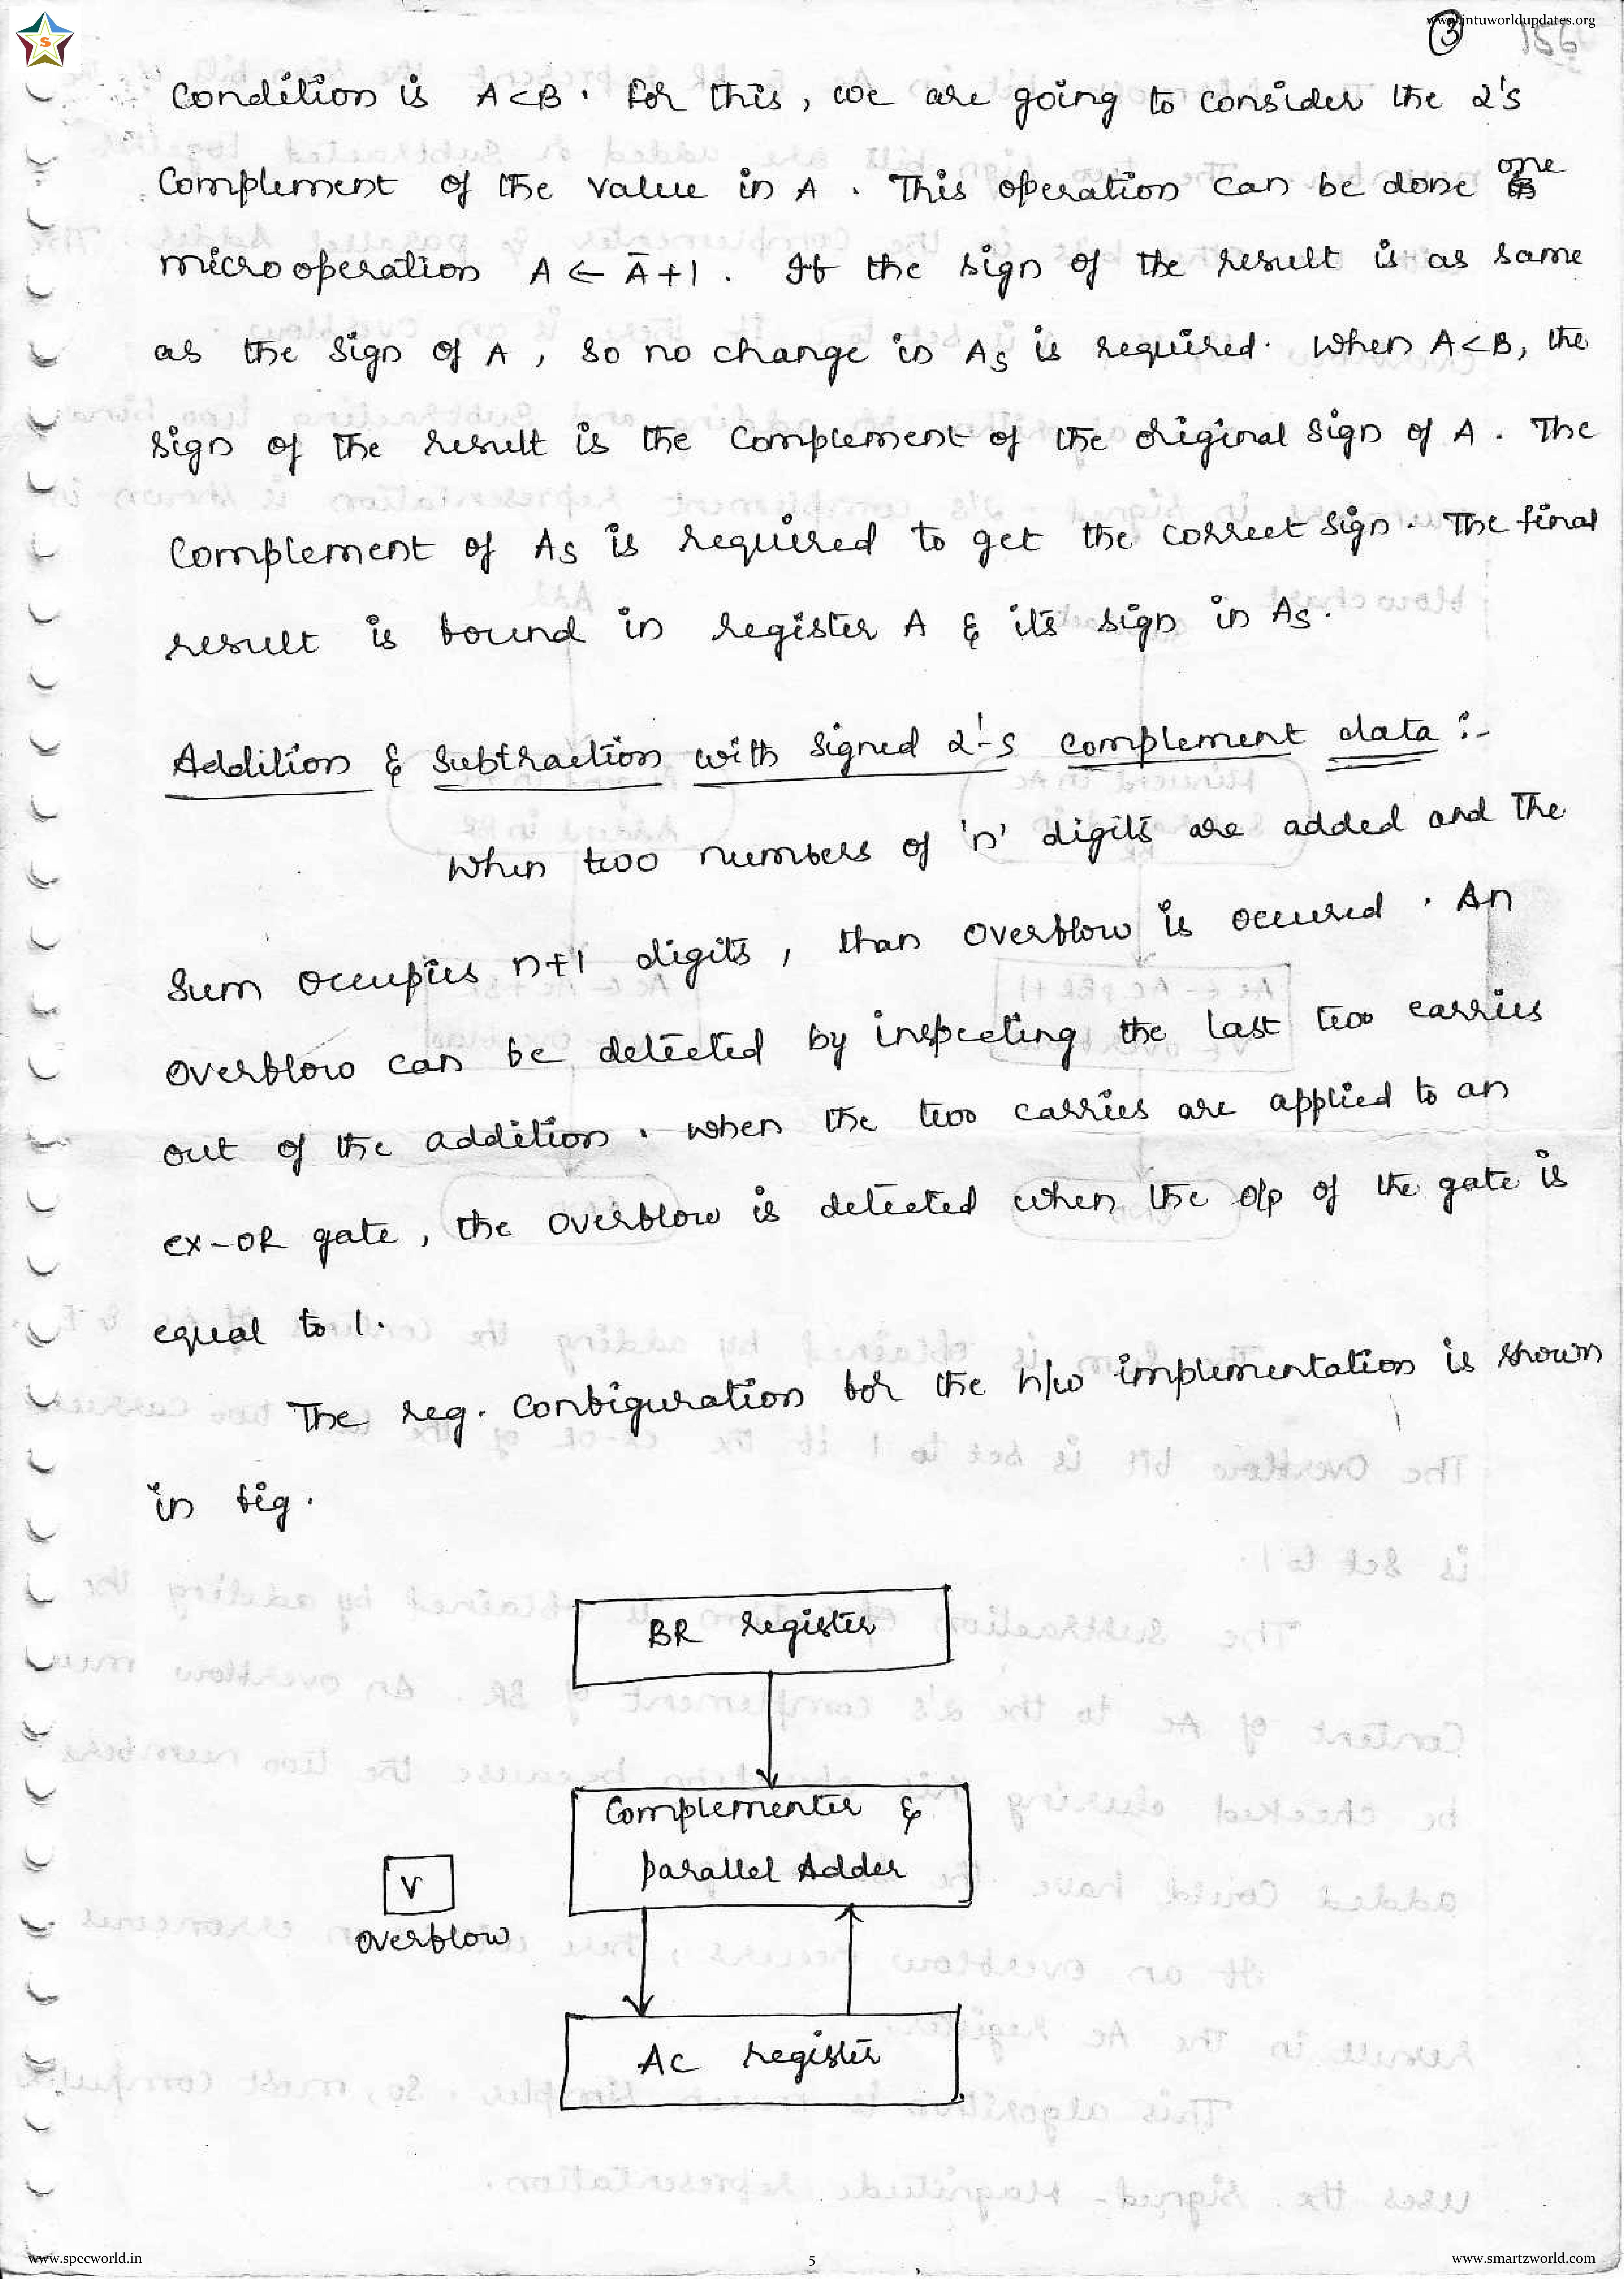 www.jntuworldupdates.org
3 156
Condition is A<B. For this, we are going to consider the 2's
Complement of the value in A. This operation can be done one
microoperation A ← Ā+1. If the sign of the result is as same
as the sign of A, so no change in As is required. When A<B, the
sign of the result is the complement of the original sign of A. The
complement of As is required to get the correct sign. The final
result is found in register A & its sign in As.
Addition & Subtraction with signed 2's complement data :-
When two numbers of 'n' digits are added and the
sum occupies n+1 digits, than overflow is occured. An
overflow can be detected by inspecting the last two carries
out of the addition. when the two carries are applied to an
ex-OR gate, the overflow is detected when the o/p of the gate is
equal to 1.
The reg. configuration for the h/w implementation is shown
in fig.
BR register
Complementer &
parallel Adder
V
overflow
AC register
www.specworld.in
5
www.smartzworld.com